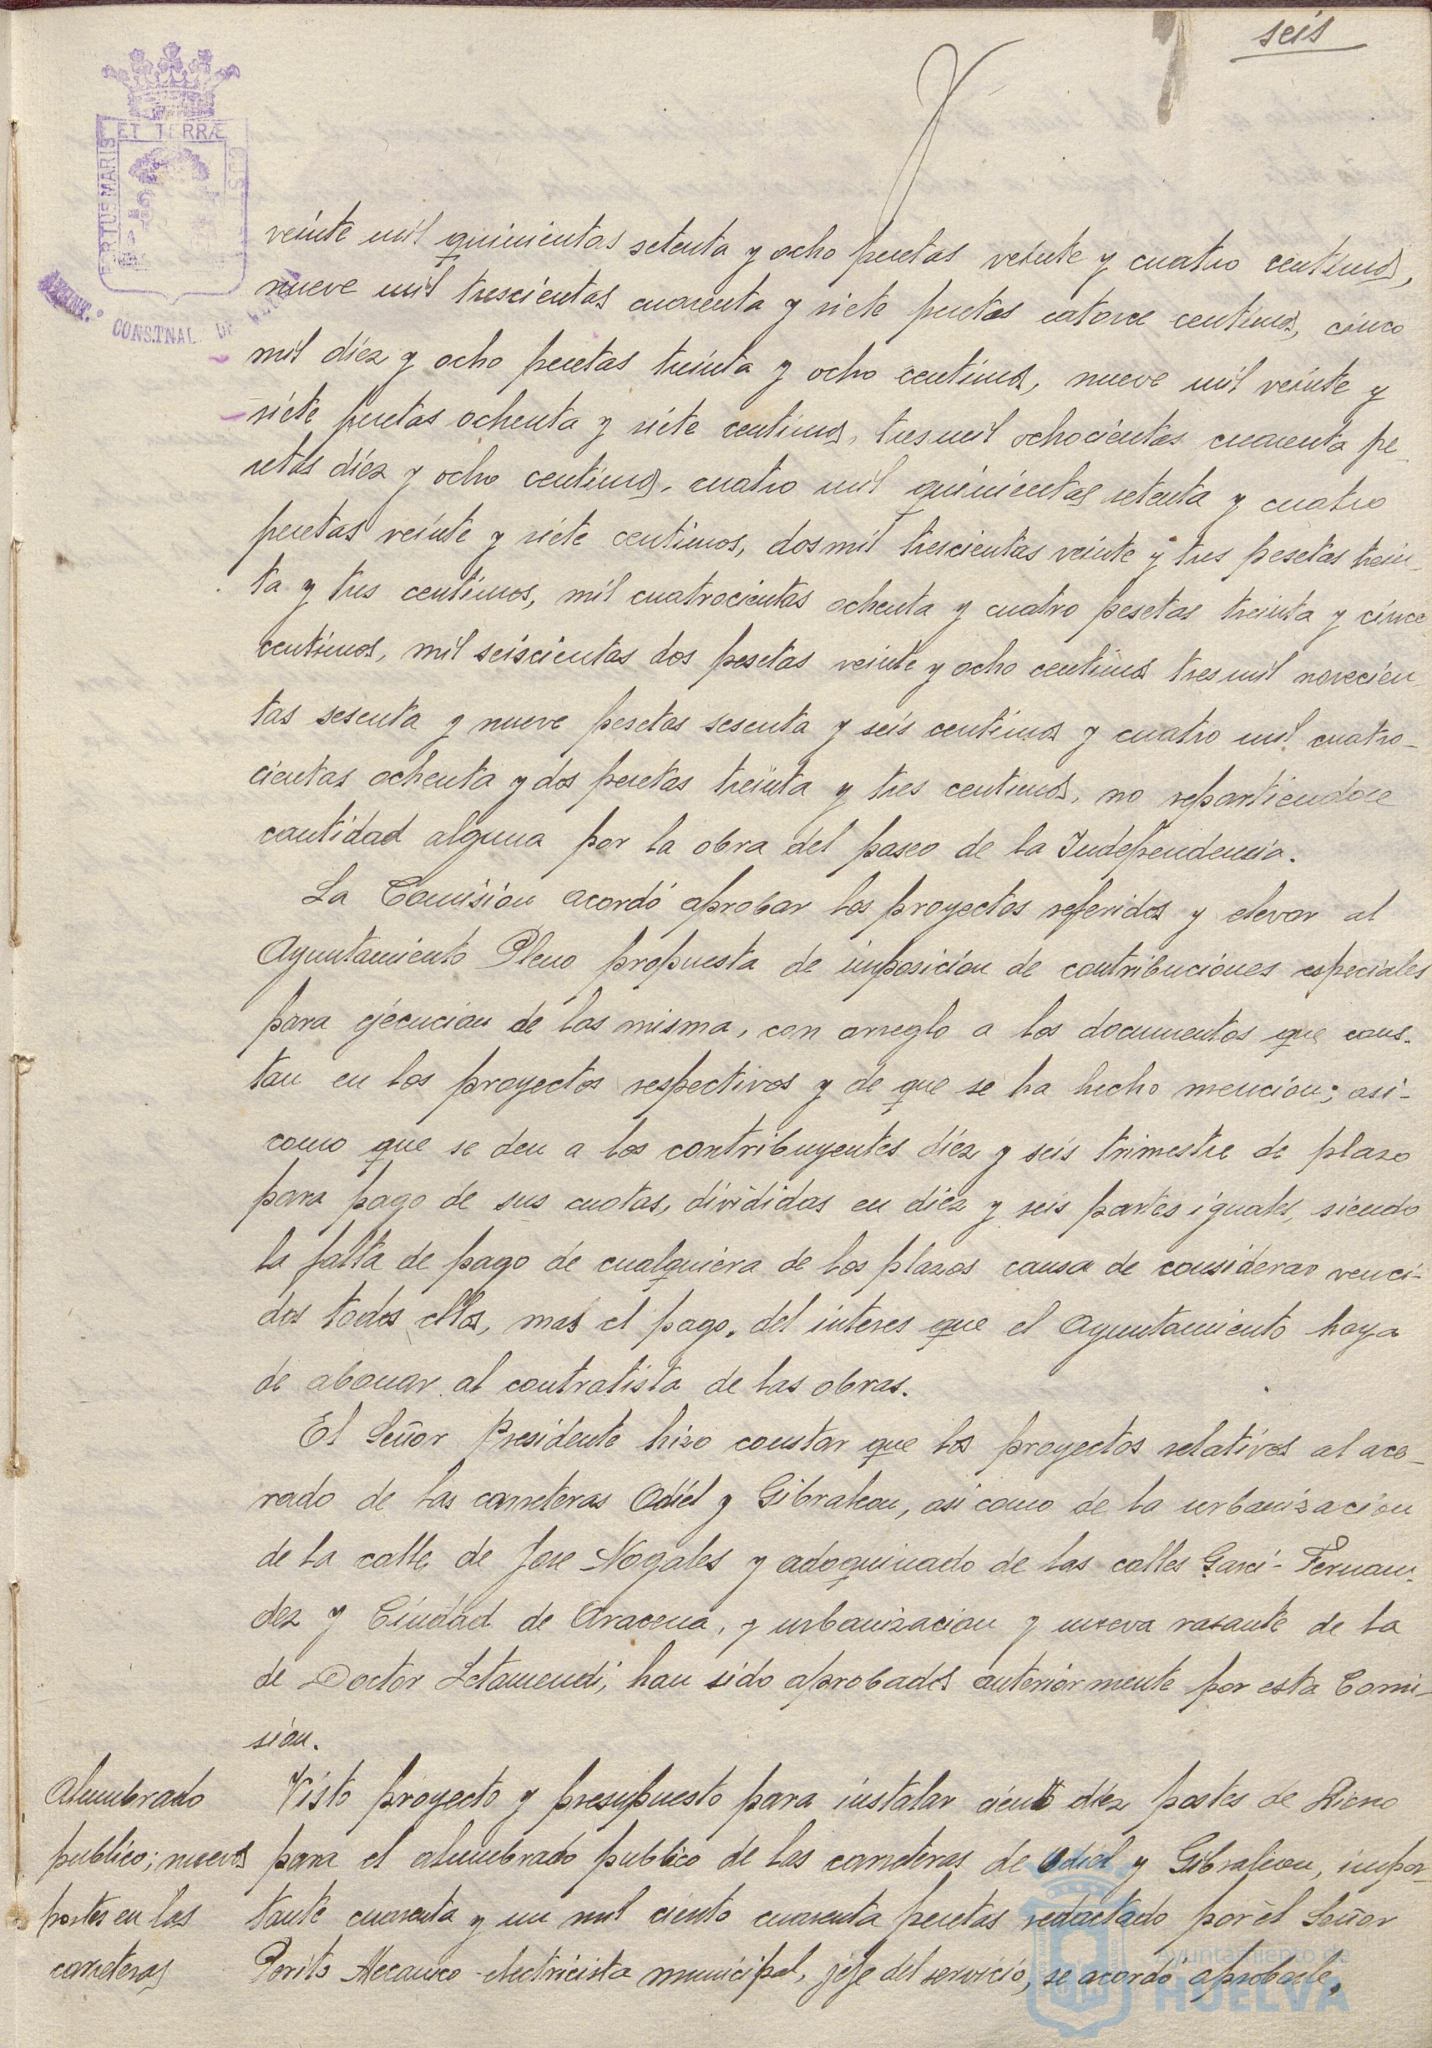 seis
ET TERRÆ
PORTUS MARIS
CUS
AYUNT. CONSTNAL DE
veinte mil quinientas setenta y ocho pesetas veinte y cuatro centimos,
nueve mil trescientas cuarenta y siete pesetas catorce centimos, cinco
mil diez y ocho pesetas treinta y ocho centimos, nueve mil veinte y
siete pesetas ochenta y siete centimos, tres mil ochocientas cuarenta pe-
setas diez y ocho centimos, cuatro mil quinientas setenta y cuatro
pesetas veinte y siete centimos, dos mil trescientas veinte y tres pesetas trein-
ta y tres centimos, mil cuatrocientas ochenta y cuatro pesetas treinta y cinco
centimos, mil seiscientas dos pesetas veinte y ocho centimos tres mil novecien-
tas sesenta y nueve pesetas sesenta y seis centimos y cuatro mil cuatro-
cientas ochenta y dos pesetas treinta y tres centimos, no repartiendose
cantidad alguna por la obra del paseo de la Independencia.
La Comision acordó aprobar los proyectos referidos y elevar al
Ayuntamiento Pleno propuesta de imposicion de contribuciones especiales
para ejecucion de las misma, con arreglo a los documentos que cons-
tan en los proyectos respectivos y de que se ha hecho mencion; asi-
como que se den a los contribuyentes diez y seis trimestre de plazo
para pago de sus cuotas, divididas en diez y seis partes iguales, siendo
la falta de pago de cualquiera de los plazos causa de considerar venci-
dos todos ellos, mas el pago, del interes que el Ayuntamiento haya
de abonar al contratista de las obras.
El Señor Presidente hizo constar que los proyectos relativos al ace-
rado de las carreteras Odiel y Gibraleon, asi como de la urbanizacion
de la calle de Jose Nogales y adoquinado de las calles Garci-Fernan-
dez y Ciudad de Aracena, y urbanizacion y nueva rasante de la
de Doctor Letamendi, han sido aprobados anteriormente por esta Comi-
sion.
Alumbrado
publico; nuevos
postes en las
carreteras
Visto proyecto y presupuesto para instalar ciento diez postes de
para el alumbrado publico de las carreteras de Odiel y Gibraleon, impor-
tante cuarenta y un mil ciento cuarenta pesetas redactado por el Señor
Perito Mecanico-electricista municipal, jefe del servicio, se acordó aprobarle,
Ayuntamiento de
HUELVA